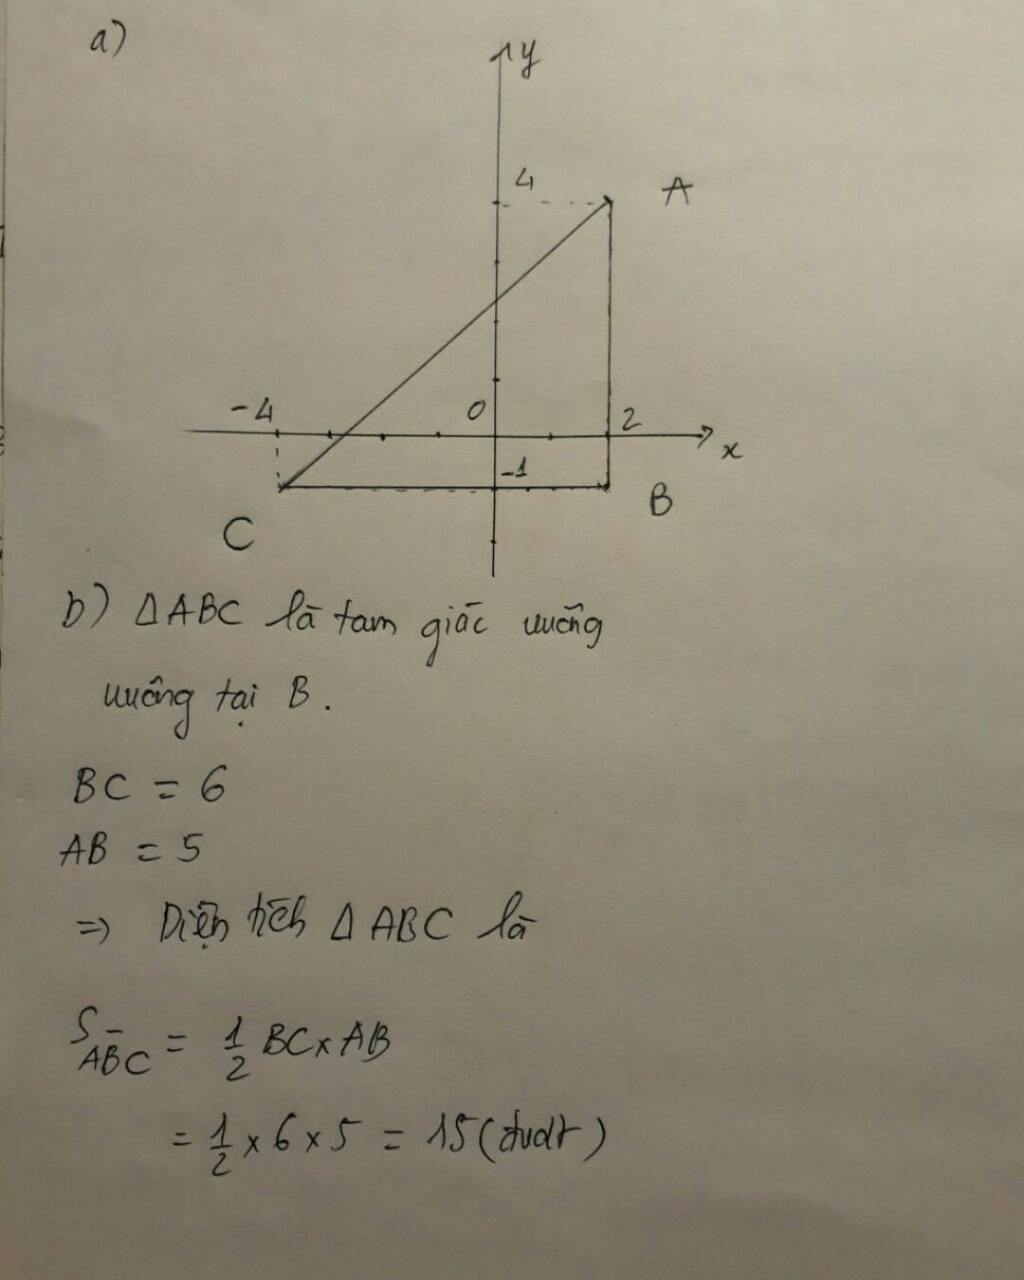 a)
y
4
A
-4
0
2
x
-1
B
C
b) ΔABC là tam giác vuông
vuông tại B.
BC = 6
AB = 5
=> Diện tích Δ ABC là
S_ABC = 1/2 BC x AB
= 1/2 x 6 x 5 = 15 (đvdt)